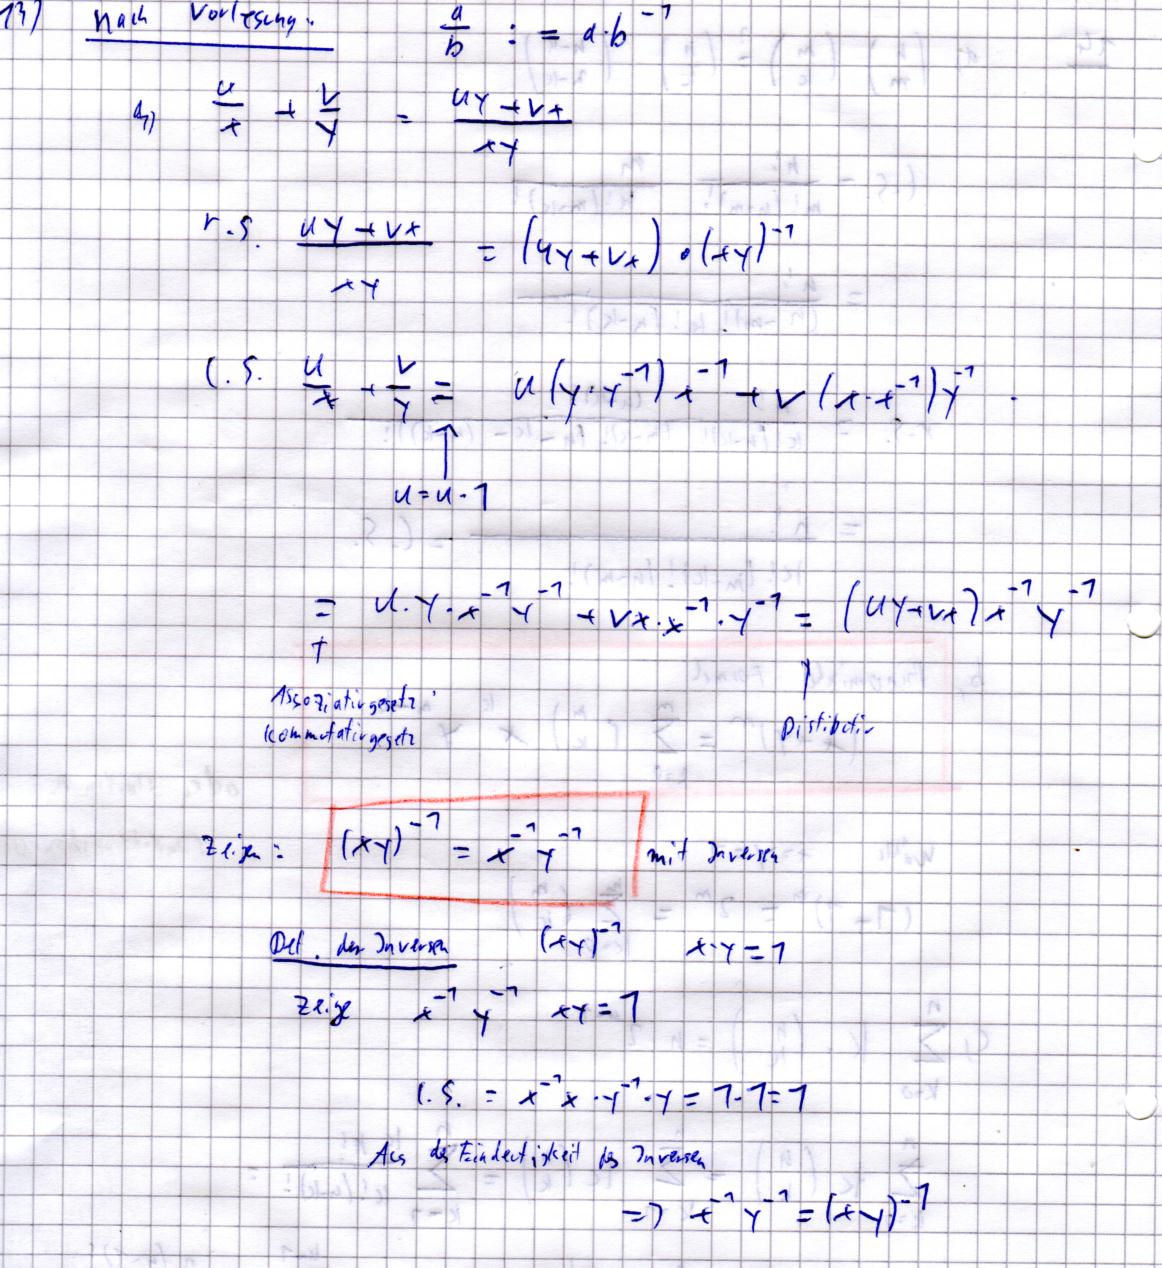 13) Nach Vorlesung: a/b := a·b⁻¹
a) u/x + v/y = (uy+vx)/(xy)
r.S. (uy+vx)/(xy) = (uy+vx)·(xy)⁻¹
l.S. u/x + v/y = u(y·y⁻¹)x⁻¹ + v(x·x⁻¹)y⁻¹.
↑
u=u·1
= u·y·x⁻¹y⁻¹ + vx·x⁻¹·y⁻¹ = (uy+vx)x⁻¹y⁻¹
↑
Assoziativgesetz
Kommutativgesetz
Distibutiv
Zeigen: (xy)⁻¹ = x⁻¹y⁻¹ mit Inversen
Def. der Inversen (xy)⁻¹ x·y=1
Zeige x⁻¹y⁻¹ xy=1
l.S. = x⁻¹x·y⁻¹·y=1·1=1
Aus der Eindeutigkeit des Inversen
=> x⁻¹y⁻¹=(xy)⁻¹